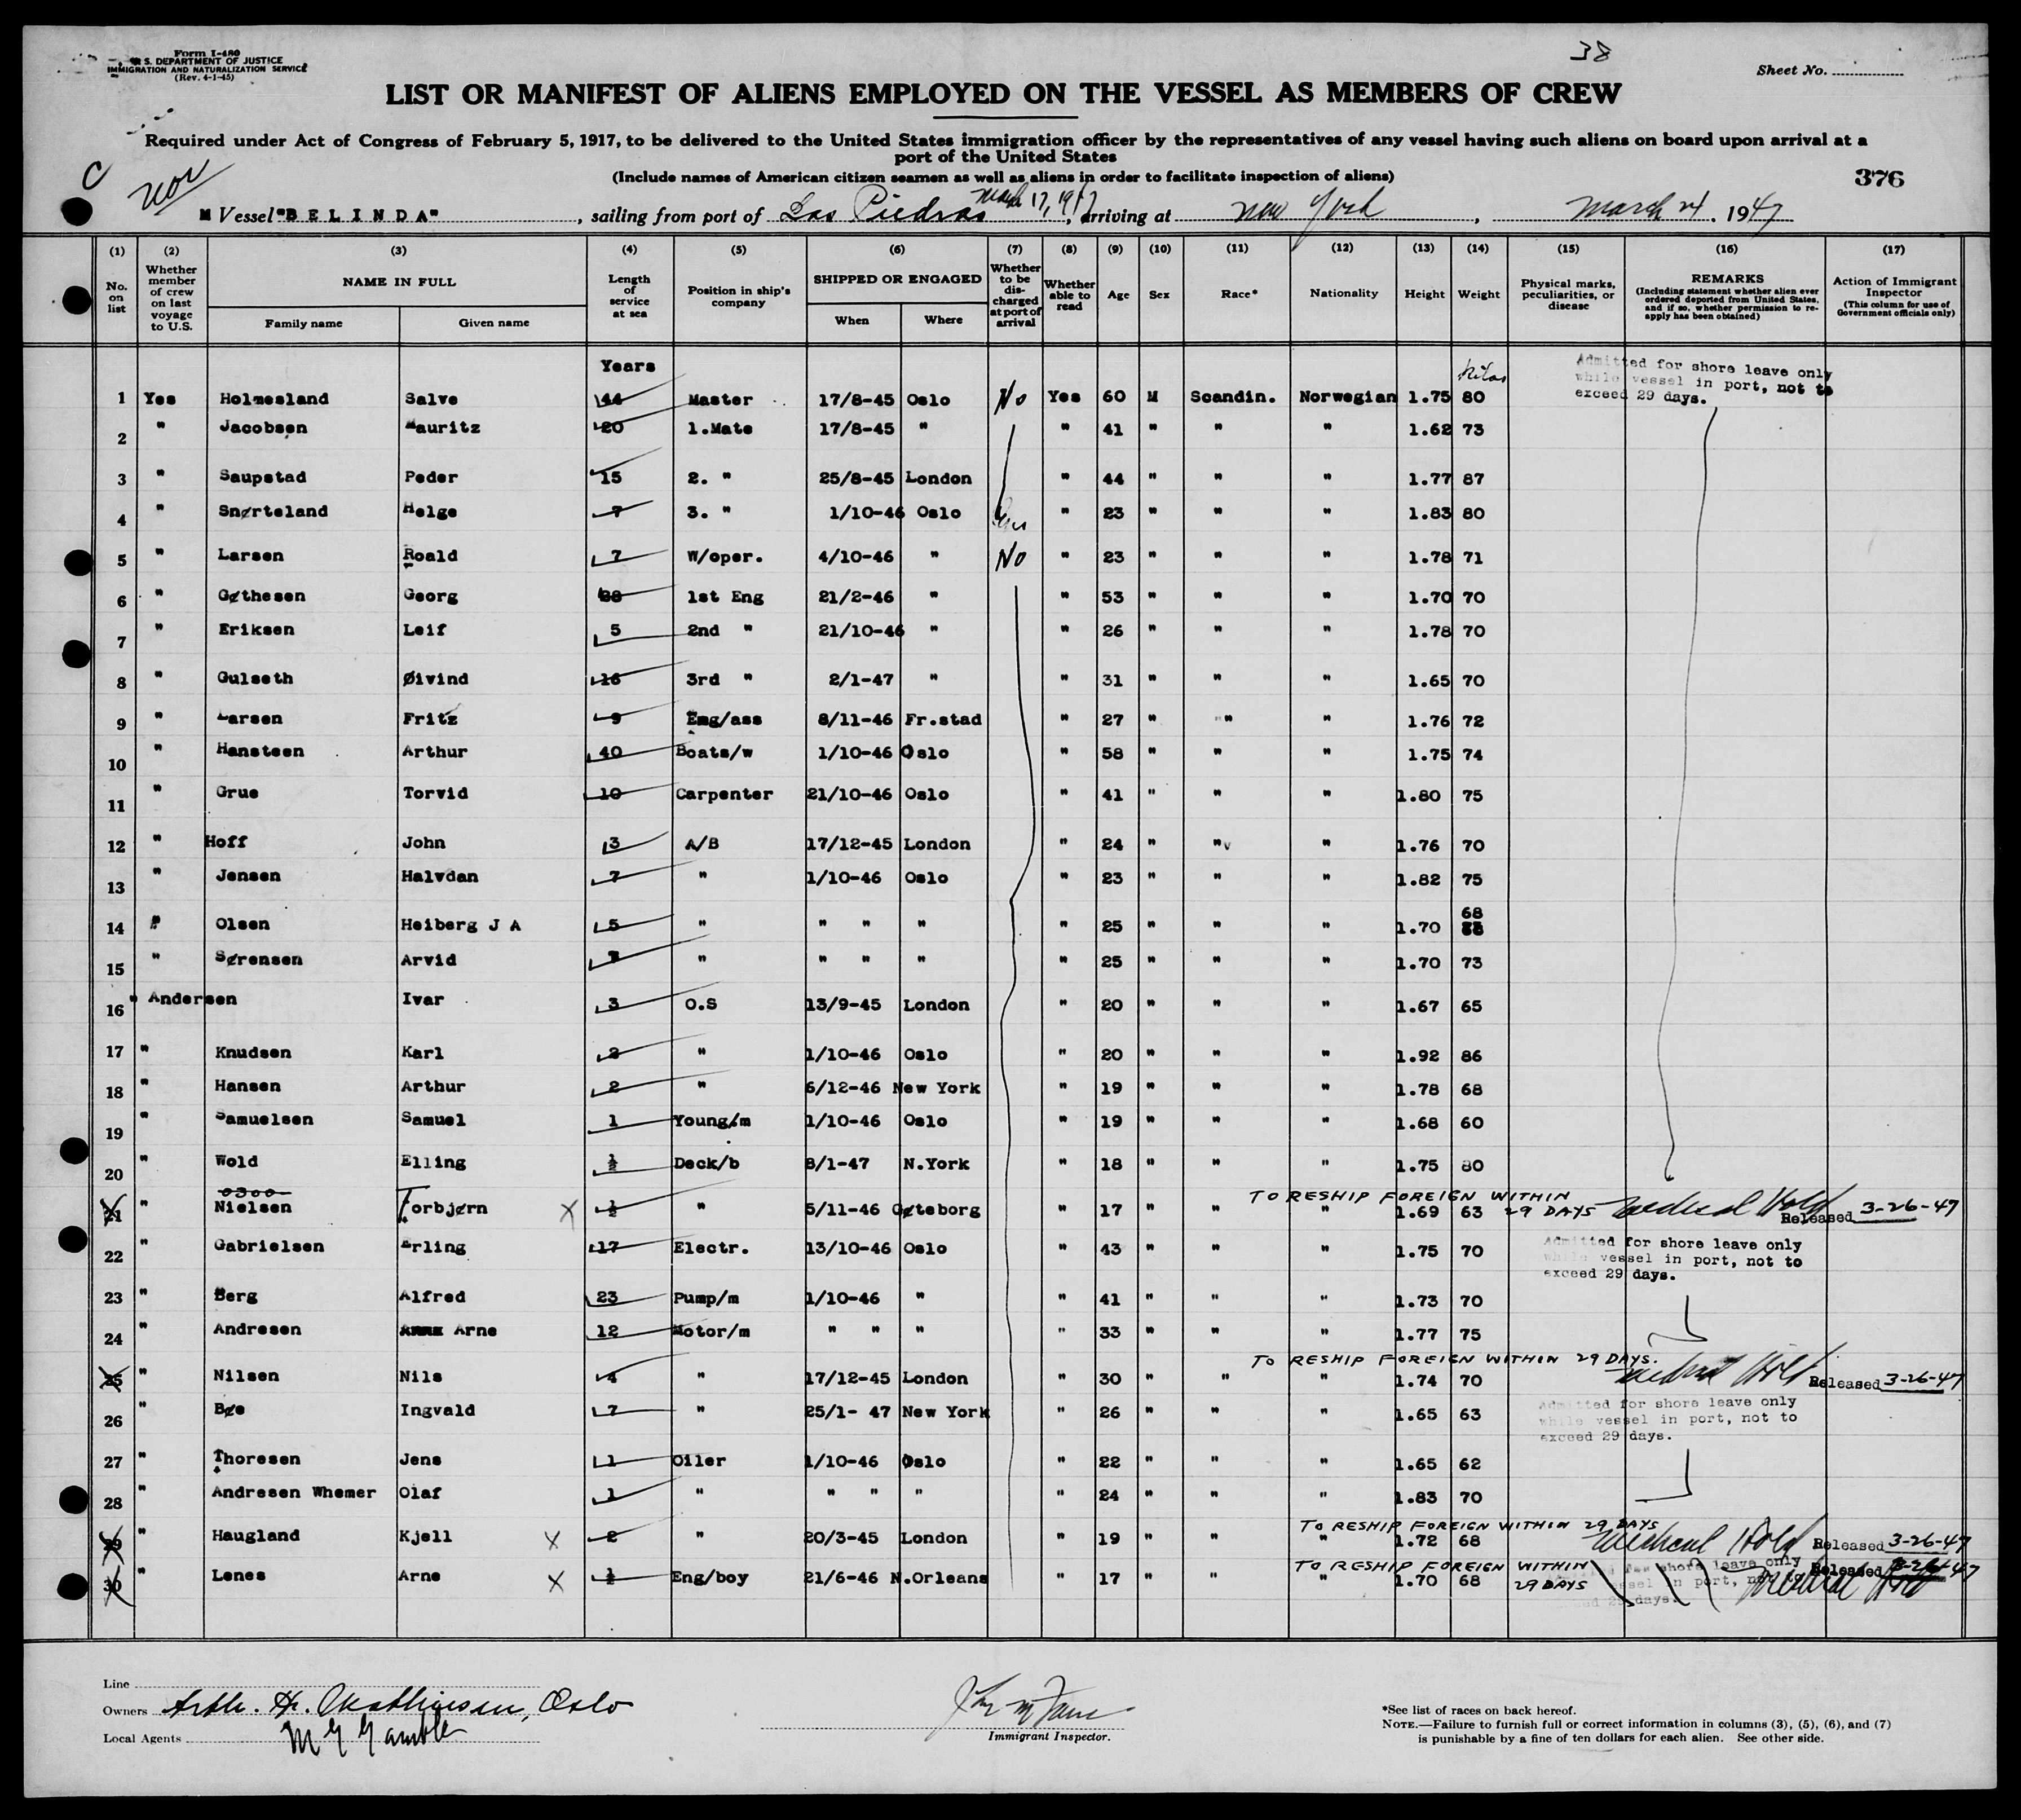 Form I-480
U. S. DEPARTMENT OF JUSTICE
IMMIGRATION AND NATURALIZATION SERVICE
(Rev. 4-1-45)
38
Sheet No.
LIST OR MANIFEST OF ALIENS EMPLOYED ON THE VESSEL AS MEMBERS OF CREW
Required under Act of Congress of February 5, 1917, to be delivered to the United States immigration officer by the representatives of any vessel having such aliens on board upon arrival at a
port of the United States
(Include names of American citizen seamen as well as aliens in order to facilitate inspection of aliens)
376
C
Nor
March 17, 1947
M Vessel "BELINDA", sailing from port of Las Piedras, arriving at New York, March 24, 1947
(1) (2) (3) (4) (5) (6) (7) (8) (9) (10) (11) (12) (13) (14) (15) (16) (17)
No. on list
Whether member of crew on last voyage to U.S.
NAME IN FULL
Family name
Given name
Length of service at sea
Position in ship's company
SHIPPED OR ENGAGED
When
Where
Whether to be discharged at port of arrival
Whether able to read
Age
Sex
Race*
Nationality
Height
Weight
Physical marks, peculiarities, or disease
REMARKS
(Including statement whether alien ever ordered deported from United States, and if so, whether permission to re-apply has been obtained)
Action of Immigrant Inspector
(This column for use of Government officials only)
Years
kilos
Admitted for shore leave only
while vessel in port, not to
exceed 29 days.
1 Yes Holmesland Salve 44 Master 17/8-45 Oslo No Yes 60 M Scandin. Norwegian 1.75 80
2 " Jacobsen Mauritz 20 1.Mate 17/8-45 " " 41 " " " 1.62 73
3 " Saupstad Peder 15 2. " 25/8-45 London " 44 " " " 1.77 87
4 " Snørteland Helge 7 3. " 1/10-46 Oslo " 23 " " " 1.83 80
5 " Larsen Roald 7 W/oper. 4/10-46 " No " 23 " " " 1.78 71
6 " Gøthesen Georg 1st Eng 21/2-46 " " 53 " " " 1.70 70
7 " Eriksen Leif 5 2nd " 21/10-46 " " 26 " " " 1.78 70
8 " Gulseth Øivind 16 3rd " 2/1-47 " " 31 " " " 1.65 70
9 " Larsen Fritz 9 Eng/ass 8/11-46 Fr.stad " 27 " " " 1.76 72
10 " Hansteen Arthur 40 Boats/w 1/10-46 Oslo " 58 " " " 1.75 74
11 " Grue Torvid 10 Carpenter 21/10-46 Oslo " 41 " " " 1.80 75
12 " Hoff John 3 A/B 17/12-45 London " 24 " " " 1.76 70
13 " Jensen Halvdan 7 " 1/10-46 Oslo " 23 " " " 1.82 75
14 " Olsen Heiberg J A 5 " " " " " 25 " " " 1.70 68
15 " Sørensen Arvid " " " " " 25 " " " 1.70 73
16 " Andersen Ivar 3 O.S 13/9-45 London " 20 " " " 1.67 65
17 " Knudsen Karl 2 " 1/10-46 Oslo " 20 " " " 1.92 86
18 " Hansen Arthur 2 " 6/12-46 New York " 19 " " " 1.78 68
19 " Samuelsen Samuel 1 Young/m 1/10-46 Oslo " 19 " " " 1.68 60
20 " Wold Elling ½ Deck/b 8/1-47 N.York " 18 " " " 1.75 80
0300
TO RESHIP FOREIGN WITHIN
21 " Nielsen Torbjørn X ½ " 5/11-46 Gøteborg " 17 " " " 1.69 63 29 DAYS Medical Hold Released 3-26-47
22 " Gabrielsen Erling 17 Electr. 13/10-46 Oslo " 43 " " " 1.75 70
Admitted for shore leave only
while vessel in port, not to
exceed 29 days.
23 " Berg Alfred 23 Pump/m 1/10-46 " " 41 " " " 1.73 70
24 " Andresen Arne 12 Motor/m " " " " 33 " " " 1.77 75
TO RESHIP FOREIGN WITHIN 29 DAYS.
25 " Nilsen Nils 4 " 17/12-45 London " 30 " " " 1.74 70 Medical Hold Released 3-26-47
26 " Bøe Ingvald 7 " 25/1- 47 New York " 26 " " " 1.65 63
Admitted for shore leave only
while vessel in port, not to
exceed 29 days.
27 " Thoresen Jens 1 Oiler 1/10-46 Oslo " 22 " " " 1.65 62
28 " Andresen Whemer Olaf 1 " " " " " 24 " " " 1.83 70
TO RESHIP FOREIGN WITHIN 29 DAYS
29 " Haugland Kjell X 2 " 20/3-45 London " 19 " " " 1.72 68 Medical Hold Released 3-26-47
TO RESHIP FOREIGN WITHIN
30 " Lenes Arne X ½ Eng/boy 21/6-46 N.Orleans " 17 " " " 1.70 68 29 DAYS Medical Hold Released 3-26-47
Line
Owners Arth. H. Mathiesen, Oslo
Local Agents M G Gamble
Immigrant Inspector.
*See list of races on back hereof.
NOTE.—Failure to furnish full or correct information in columns (3), (5), (6), and (7)
is punishable by a fine of ten dollars for each alien. See other side.